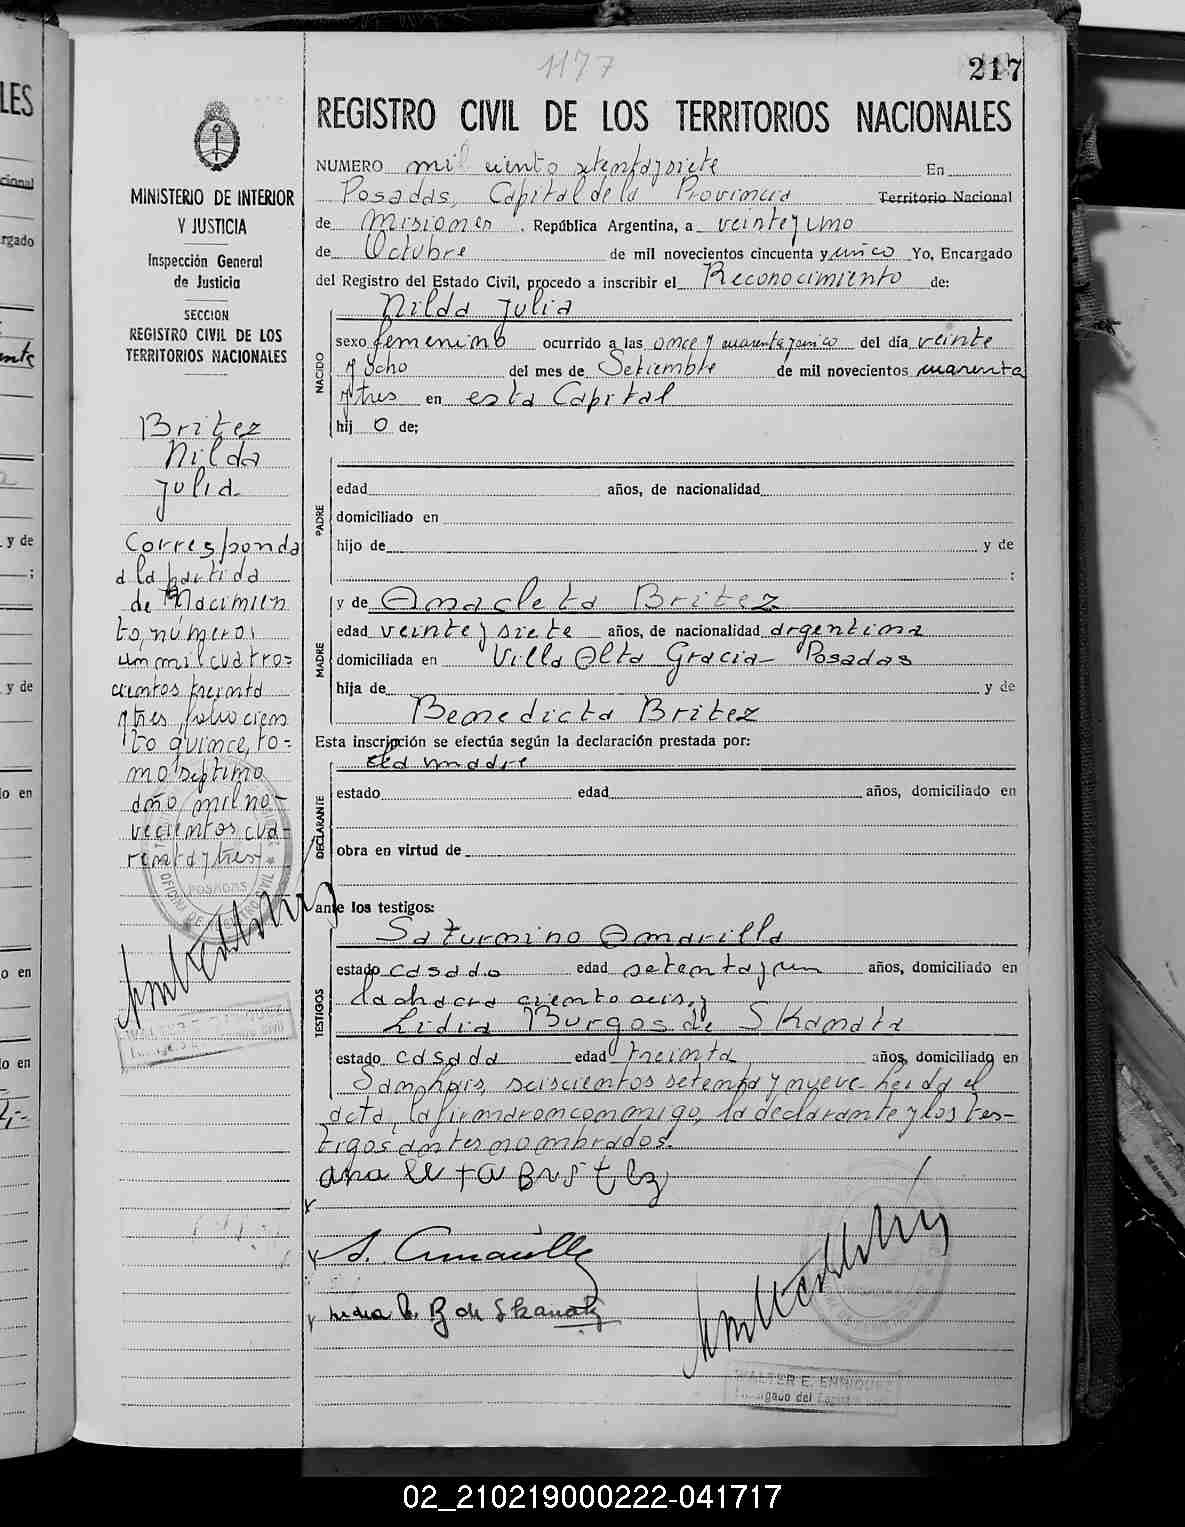 1177
217
REGISTRO CIVIL DE LOS TERRITORIOS NACIONALES
NUMERO mil ciento setenta y siete En
Posadas, Capital de la Provincia Territorio Nacional
de Misiones, República Argentina, a veinte y uno
de Octubre de mil novecientos cincuenta y cinco Yo, Encargado
del Registro del Estado Civil, procedo a inscribir el Reconocimiento de:
Nilda Julia
NACIDO
sexo femenino ocurrido a las once y cuarenta y cinco del día veinte
y ocho del mes de Setiembre de mil novecientos cuarenta
y tres en esta Capital
hij o de;
PADRE
edad años, de nacionalidad
domiciliado en
hijo de y de
;
MADRE
y de Anacleta Britez
edad veinte y siete años, de nacionalidad argentina
domiciliada en Villa Alta Gracia - Posadas
hija de y de
Benedicta Britez
Esta inscripción se efectúa según la declaración prestada por:
DECLARANTE
la madre
estado edad años, domiciliado en
obra en virtud de
ante los testigos:
TESTIGOS
Saturnino Amarilla
estado casado edad setenta y un años, domiciliado en
la chacra ciento seis, y
Lidia Burgos de Skanata
estado casada edad treinta años, domiciliado en
seiscientos setenta y nueve - leida el
acta, la firmaron conmigo, la declarante y los tes-
tigos antes nombrados.
ana cle ta Britez
S. Amarilla
Lidia B. de Skanata
WALTER E. ENRIQUEZ
Encargado del Registro Civil
MINISTERIO DE INTERIOR
Y JUSTICIA
Inspección General
de Justicia
SECCION
REGISTRO CIVIL DE LOS
TERRITORIOS NACIONALES
Britez
Nilda
Julia
Corresponda
a la partida
de Nacimien
to, número:
un mil cuatro=
cientos treinta
y tres, folio cien
to quince, to=
mo septimo
año mil no-
vecientos cua-
renta y tres
POSADAS
02_210219000222-041717